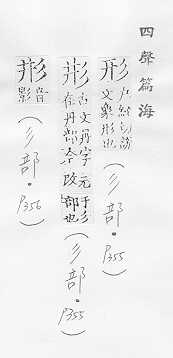 四聲篇海
形
户經切說
文象形也
(彡部。P355)
古文丹字元
在丹部今改
于彡
部也
(彡部。P355)
音
影
(彡部。P356)